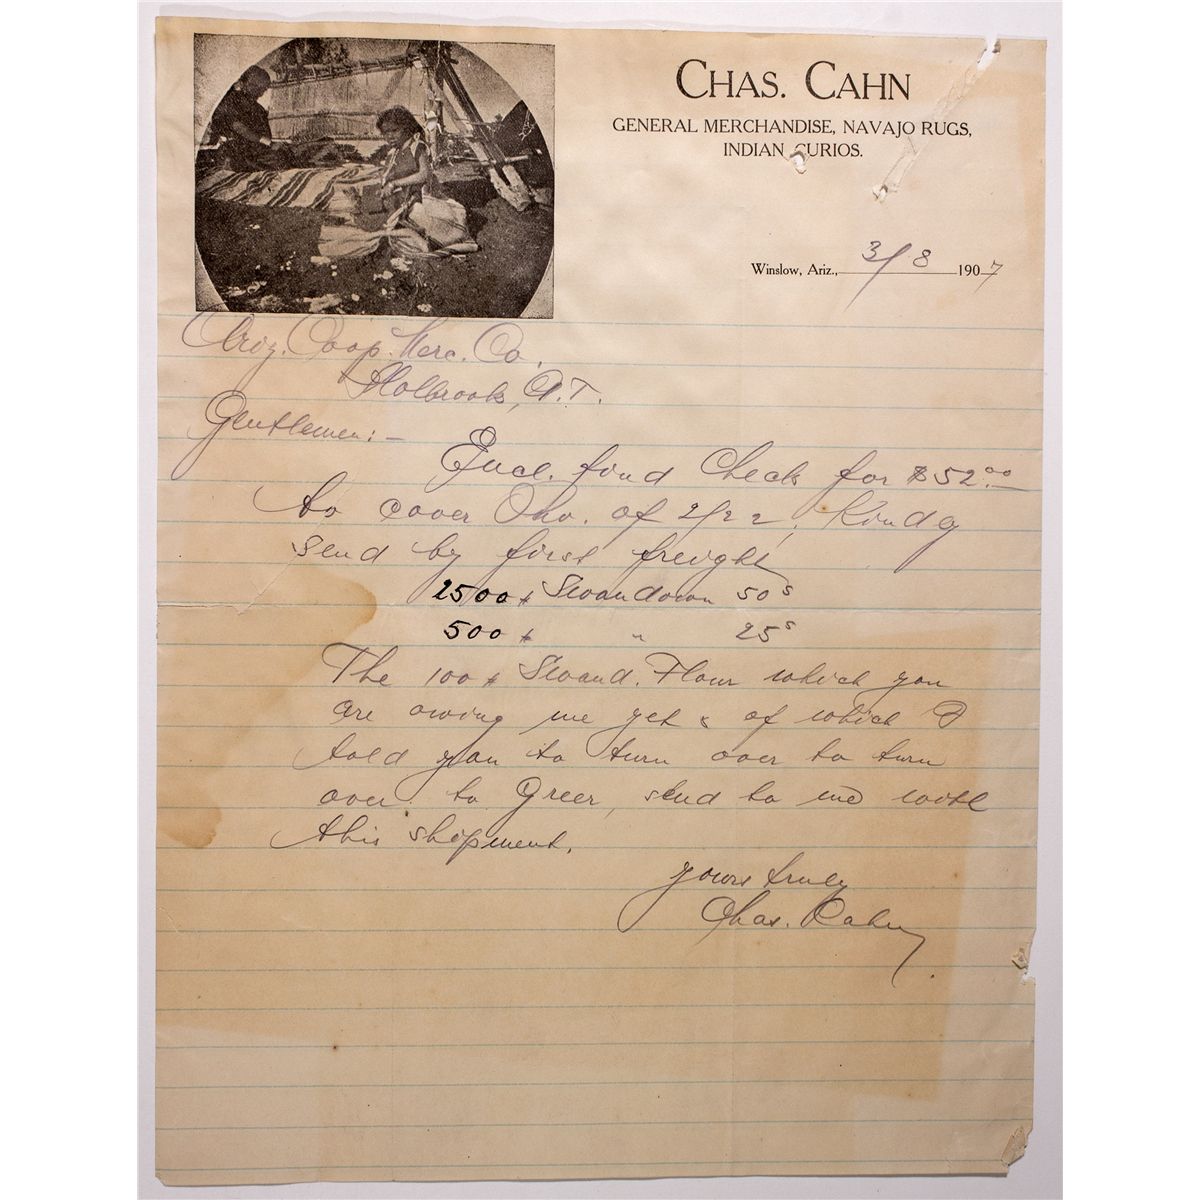 CHAS. CAHN
GENERAL MERCHANDISE, NAVAJO RUGS,
INDIAN CURIOS.
Winslow, Ariz., 3/8 1907
Ariz. Coop. Merc. Co.
Holbrook, A.T.
Gentlemen:-
Encl. find Check for $52.00
to cover Inv. of 2/22, Kindly
send by first freight
2500 # Swandown 50s
500 # " 25s
The 100 # Swand. Flour which you
are owing me yet & of which I
told you to turn over to turn
over to Greer, send to me with
this shipment.
yours truly
Chas. Cahn.